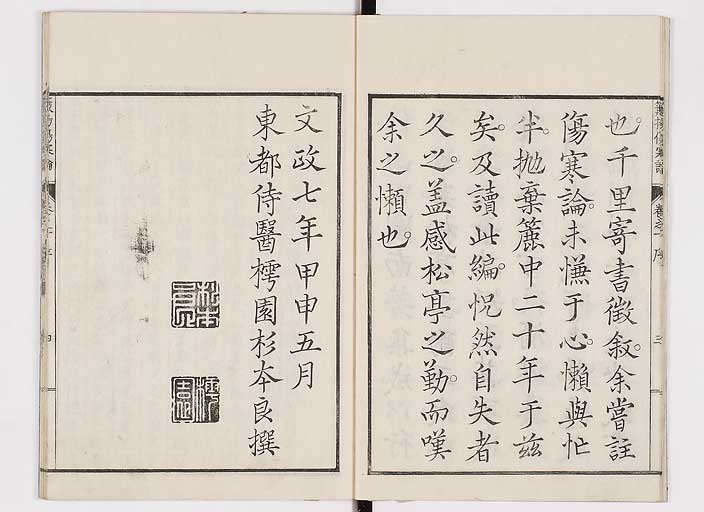 也。千里寄書徵叙。余嘗註
傷寒論。未慊于心。懶與忙
半。抛棄簏中二十年于兹
矣。及讀此編。怳然自失者
久之。蓋感松亭之勤。而嘆
余之懶也。
文政七年甲申五月
東都侍醫樗園杉本良撰